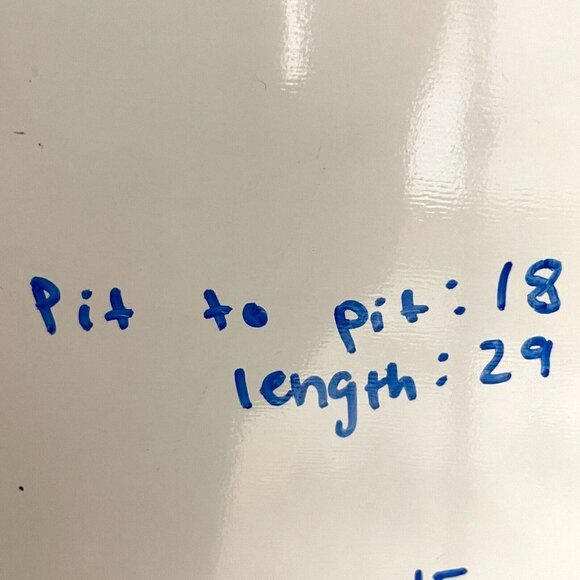 Pit to pit: 18
length: 29